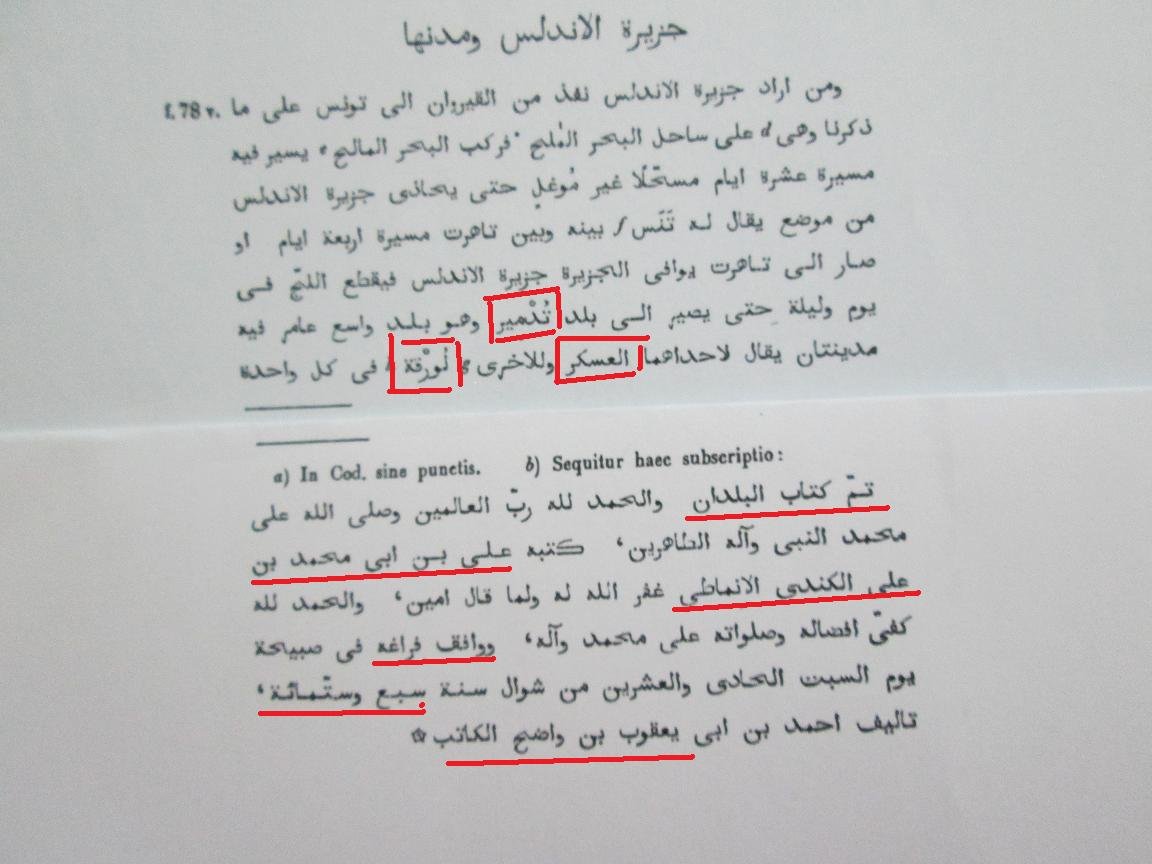 جزيرة الاندلس ومدنها
ومن اراد جزيرة الاندلس نفذ من القيروان الى تونس على ما f. 78 v.
ذكرنا وهى d على ساحل البحر المُلبح ' فركب البحر المالح e يسير فيه
مسيرة عشرة ايام مسحّلًا غير مُوغلٍ حتى يحاذى جزيرة الاندلس
من موضع يقال له تَنَس f بينه وبين تاهرت مسيرة اربعة ايام او
صار الى تاهرت يوافى الجزيرة جزيرة الاندلس فيقطع اللجّ فى
يوم وليلة حتى يصير الى بلد تُدْمير وهو بلد واسع عامر فيه
مدينتان يقال لاحداهما العسكر وللاخرى g لُورْقة فى كل واحدة
a) In Cod. sine punctis. b) Sequitur haec subscriptio:
تمّ كتاب البلدان والحمد لله ربّ العالمين وصلى الله على
محمد النبى وآله الطاهرين، كتبه على بن ابى محمد بن
على الكندى الانماطى غفر الله له ولما قال امين، والحمد لله
كفىّ افضاله وصلواته على محمد وآله، ووافق فراغه فى صبيحة
يوم السبت الحادى والعشرين من شوال سنة سبع وستّمائة،
تاليف احمد بن ابى يعقوب بن واضح الكاتب ☆